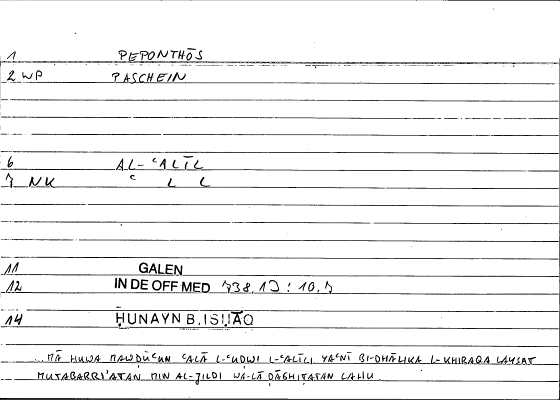 1 PEPONTHŌS
2 WP PASCHEIN
6 AL-ʿALĪL
7 NK ʿ L L
11 GALEN
12 IN DE OFF MED 738,13 : 10,7
14 ḤUNAYN B. ISḤĀQ
...MĀ HUWA MAWḌŪʿUN ʿALĀ L-ʿUḌWI L-ʿALĪLI YAʿNĪ BI-DHĀLIKA L-KHIRAQA LAYSAT
MUTABARRIʾATAN MIN AL-JILDI WA-LĀ ḌĀGHIṬATAN LAHU